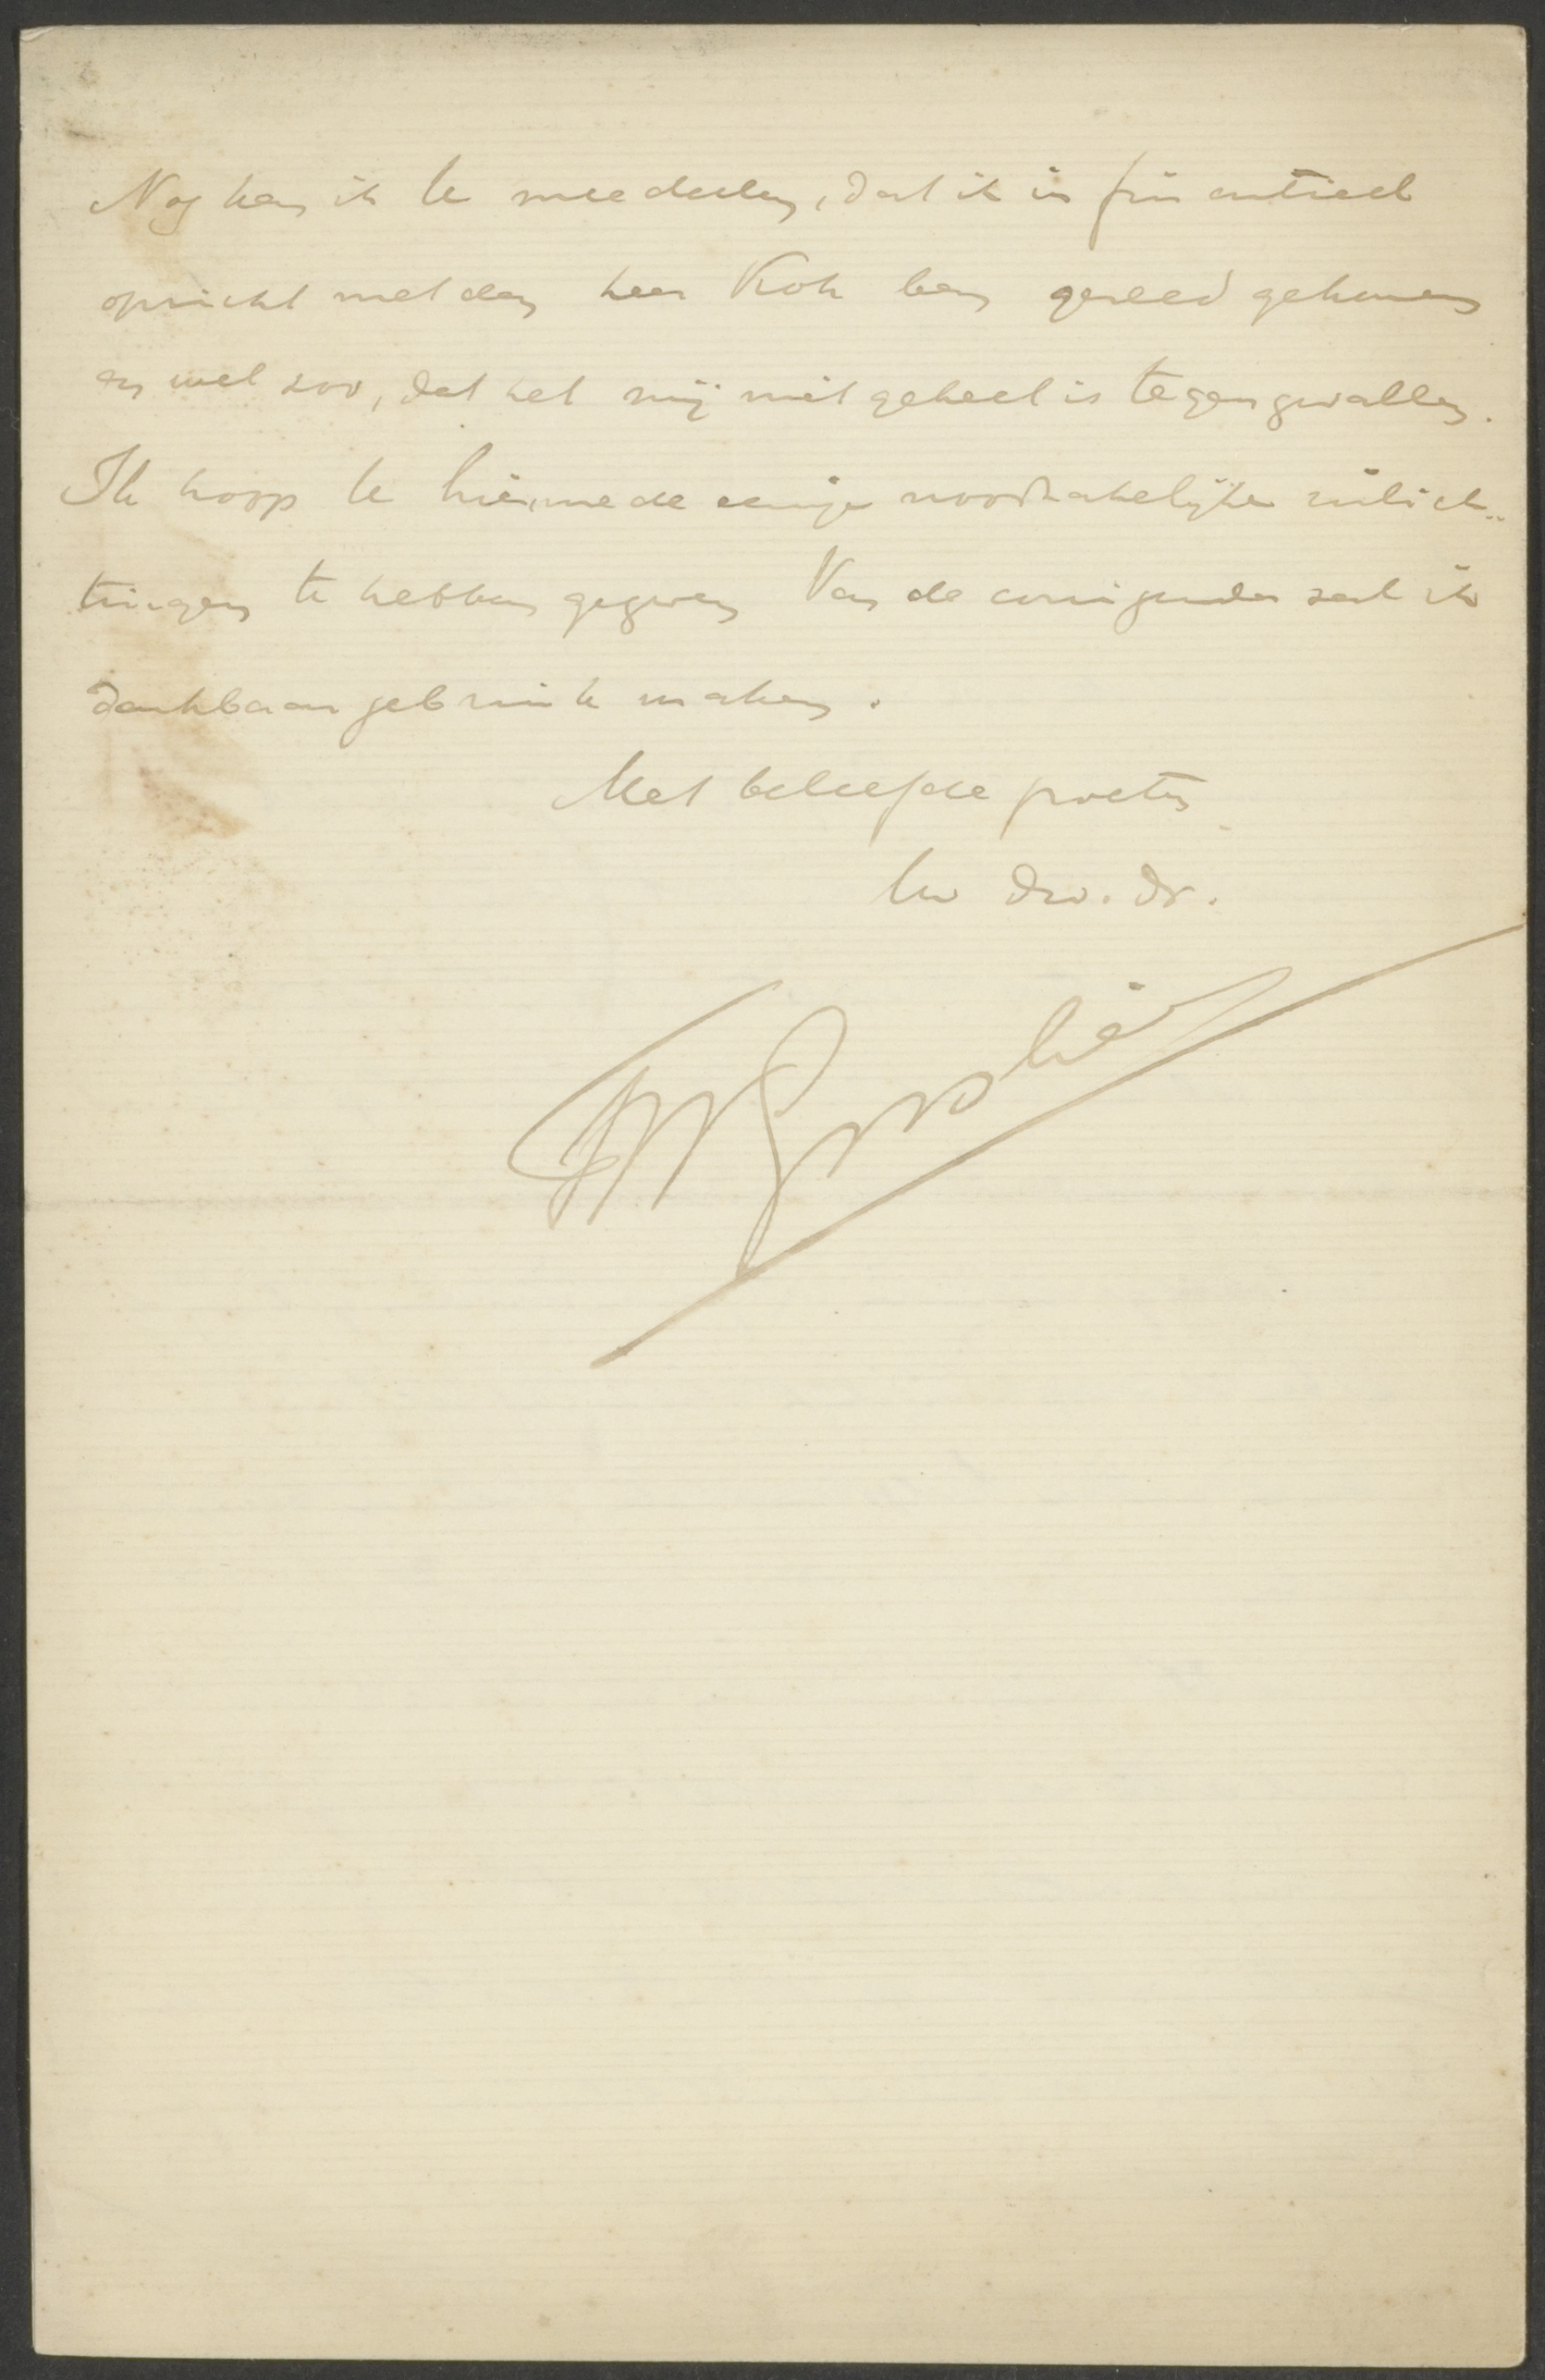 Nog kan ik U meedeelen, dat ik in financieel
opzicht met den heer Kok ben gereed gekomen
en wel zoo, dat het mij niet geheel is tegengevallen.
Ik hoop U hiermede eenige noodzakelijke inlich-
tingen te hebben gegeven Van de corrigenda zal ik
dankbaar gebruik maken.
Met beleefde groeten
Uw dw. dr.